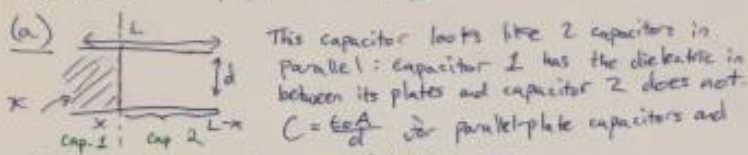 (a)
L
This capacitor looks like 2 capacitors in
parallel: capacitor 1 has the dielectric in
between its plates and capacitor 2 does not.
C = ε₀A/d for parallel-plate capacitors and
d
κ
x
L-x
cap. 1
cap 2